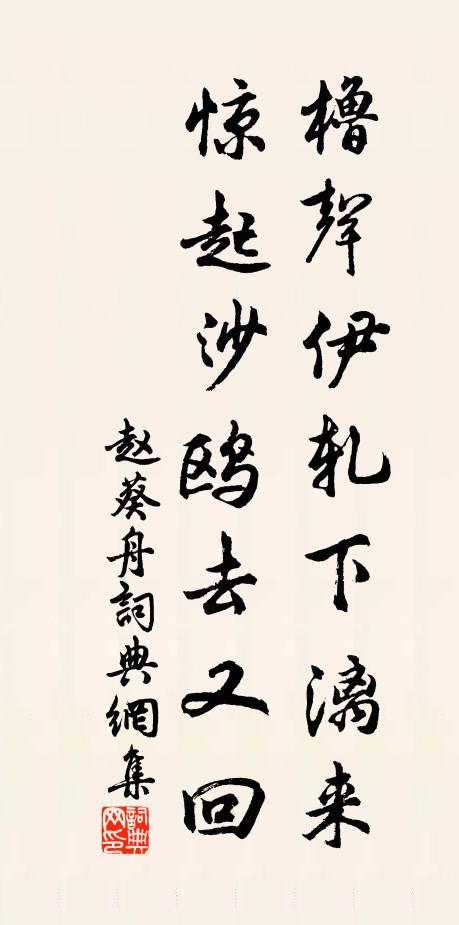 橹聲伊轧下漓来
惊起沙鸥去又回
赵葵舟詞典網集
詞典网印